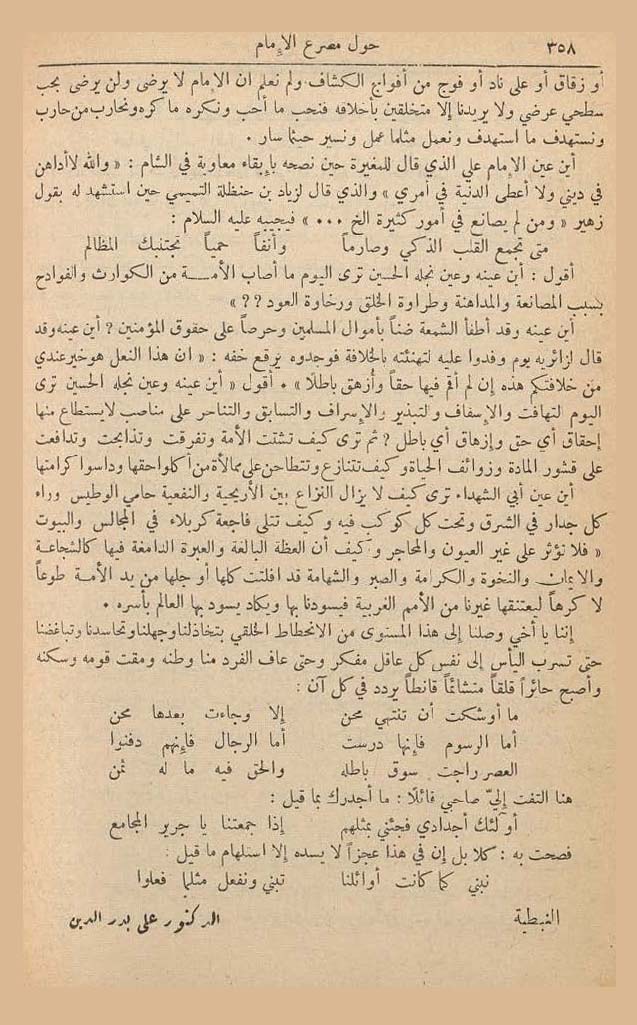 ٣٥٨
حول مصرع الإمام
أو زقاق أو على ناد أو فوج من أفواج الكشاف. ولم نعلم ان الإمام لا يرضى ولن يرضى بحب
سطحي عرضي ولا يريدنا إلا متخلقين بأخلاقه فنحب ما أحب ونكره ما كره ونحارب من حارب
ونستهدف ما استهدف ونعمل مثلما عمل ونسير حيثما سار .
أين عين الإمام علي الذي قال للمغيرة حين نصحه بإبقاء معاوية في الشام : « والله لا أداهن
في ديني ولا أعطى الدنية في أمري » والذي قال لزياد بن حنظلة التميمي حين استشهد له بقول
زهير « ومن لم يصانع في أمور كثيرة الخ ... » فيجيبه عليه السلام :
متى تجمع القلب الذكي وصارماً وأنفاً حمياً تجتنبك المظالم
أقول : أين عينه وعين نجله الحسين ترى اليوم ما أصاب الأمـــة من الكوارث والفوادح
بسبب المصانعة والمداهنة وطراوة الخلق ورخاوة العود ؟ ؟ »
أين عينه وقد أطفأ الشمعة ضناً بأموال المسلمين وحرصاً على حقوق المؤمنين ? أين عينه وقد
قال لزائريه يوم وفدوا عليه لتهنئته بالخلافة فوجدوه يرقع خفه : « ان هذا النعل هو خير عندي
من خلافتكم هذه إن لم أقم فيها حقاً وأزهق باطلًا » . أقول « أين عينه وعين نجله الحسين ترى
اليوم التهافت والإسفاف والتبذير والإسراف والتسابق والتناحر على مناصب لا يستطاع منها
إحقاق أي حق وإزهاق أي باطل ? ثم ترى كيف تشتت الأمة وتفرقت وتذابحت وتدافعت
على قشور المادة وزوائف الحياة وكيف تتنازع وتتطاحن على ممالأة من أكلوا حقها وداسوا كرامتها
أين عين أبي الشهداء ترى كيف لا يزال النزاع بين الأريحية والنفعية حامي الوطيس وراء
كل جدار في الشرق وتحت كل كوكب فيه وكيف تتلى فاجعة كربلاء في المجالس والبيوت
« فلا تؤثر على غير العيون والمحاجر وكيف أن العظة البالغة والعبرة الدامغة فيها كالشجاعة
والايمان والنخوة والكرامة والصبر والشهامة قد افلتت كلها أو جلها من يد الأمـة طوعاً
لا كرهاً ليعتنقها غيرنا من الأمم الغربية فيسودنا بها ويكاد يسود بها العالم بأسره .
إننا يا أخي وصلنا إلى هذا المستوى من الانحطاط الخلقي بتخاذلنا وجهلنا وتحاسدنا وتباغضنا
حتى تسرب اليأس إلى نفس كل عاقل مفكر وحتى عاف الفرد منا وطنه ومقت قومه وسكنه
وأصبح حائراً قلقاً متشائماً قانطاً يردد في كل آن :
ما أوشكت أن تنتهي محن إلا وجاءت بعدها محن
أما الرسوم فإنها درست أما الرجال فإنهم دفنوا
العصر راجت سوق باطله والحق فيه ما له ثمن
هنا التفت إليّ صاحبي قائلًا : ما أجدرك بما قيل :
أولئك أجدادي فجئني بمثلهم إذا جمعتنا يا جرير المجامع
فصحت به : كلا بل إن في هذا عجزاً لا يسده إلا استلهام ما قيل :
نبني كما كانت أوائلنا تبني ونفعل مثلما فعلوا
الغبطية
الدكتور علي بدر الدين